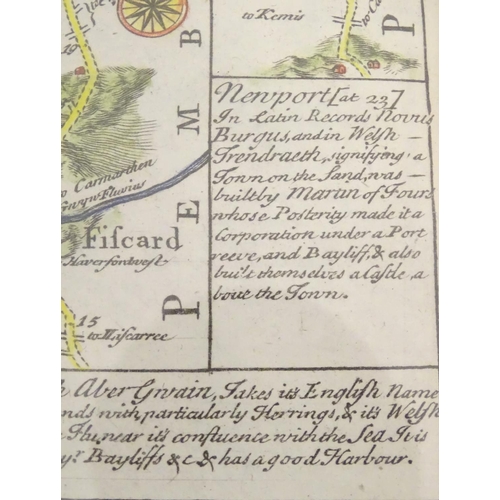 to Kemis
P
B
M
E
P
Newport [at 23]
In Latin Records Novus
Burgus, and in Welsh —
Trendraeth, signifying a
Town on the Sand, was —
built by Martin of Tours
whose Posterity made it a
Corporation under a Port
reeve, and Bayliff, & also
built themselves a Castle a
bove the Town.
o Carmarthen
Gwyn Fluvius
Fiscard
Haverfordwest
15
15
to Hiscarree
h Aber Gwain, Takes its English Name
nds with, particularly Herrings, & its Welsh
Flu, near its confluence with the Sea It is
yr. Bayliffs & c & has a good Harbour.